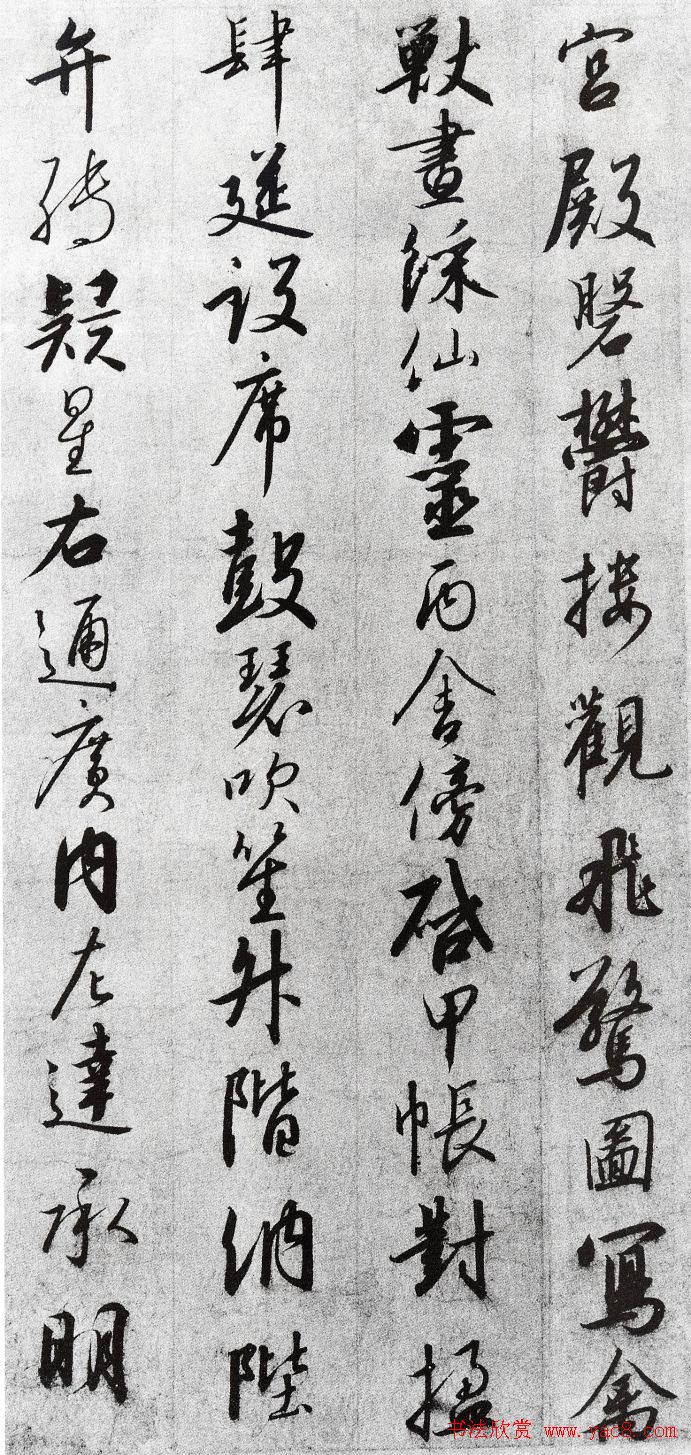 宮殿磐鬱楼觀飛驚圖寫禽
獸畫綵仙靈丙舍傍啓甲帳對楹
肆筵設席鼓瑟吹笙升階納陛
弁轉疑星右通廣内左達承明
书法欣赏 www.yac8.com